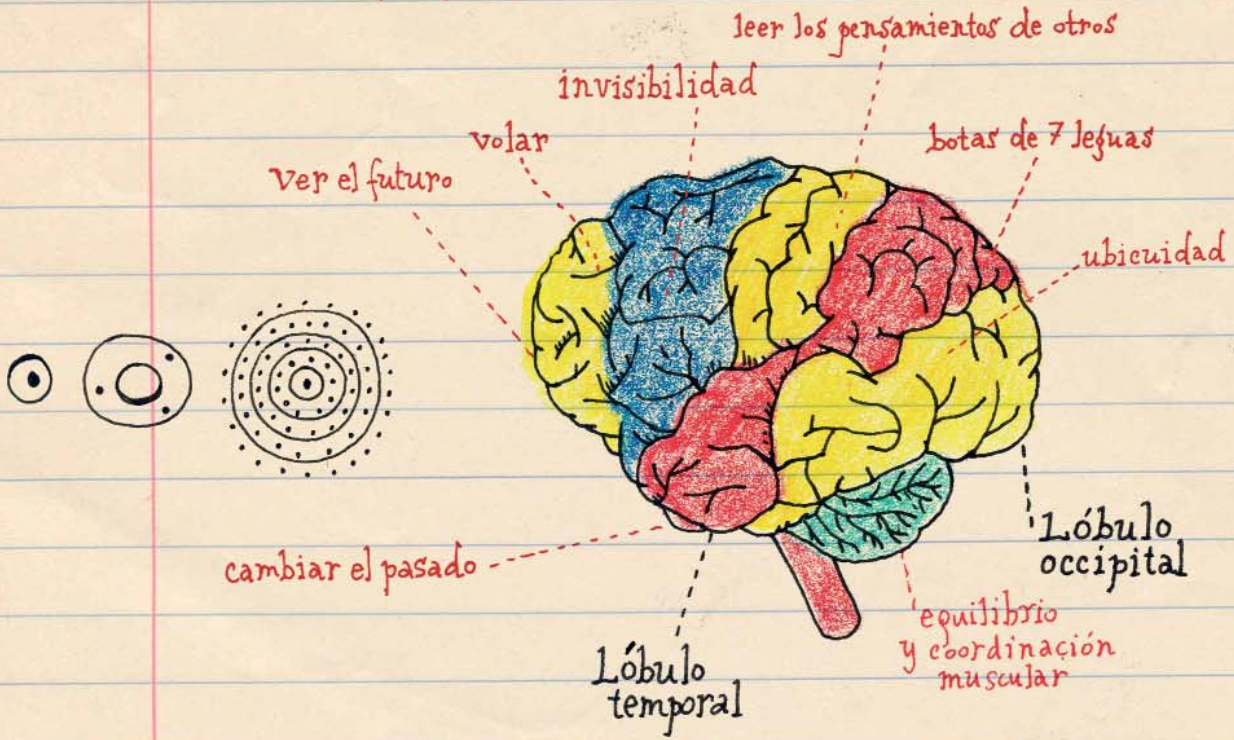 leer los pensamientos de otros
invisibilidad
volar
botas de 7 leguas
ver el futuro
ubicuidad
cambiar el pasado
Lóbulo
occipital
equilibrio
y coordinación
muscular
Lóbulo
temporal